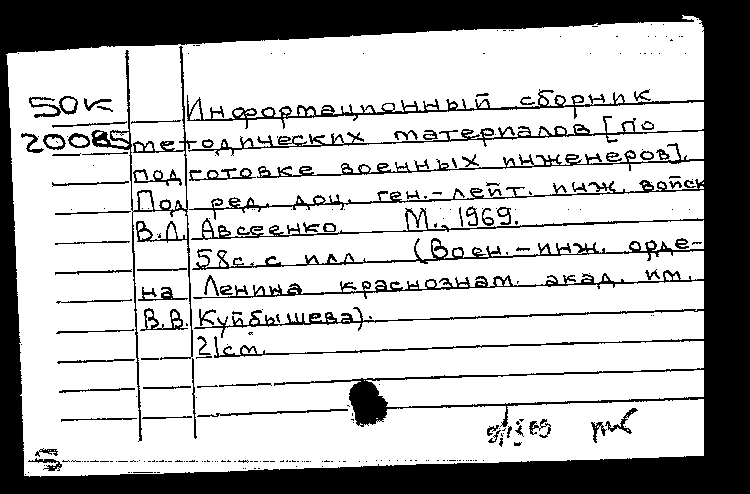 50К Информационный сборник
20085 методических материалов [по
подготовке военных инженеров].
Под ред. доц. ген.-лейт. инж. войск
В.Л. Авсеенко. М., 1969.
58с. с илл. (Воен.-инж. орде-
на Ленина краснознам. акад. им.
В.В. Куйбышева).
21см.